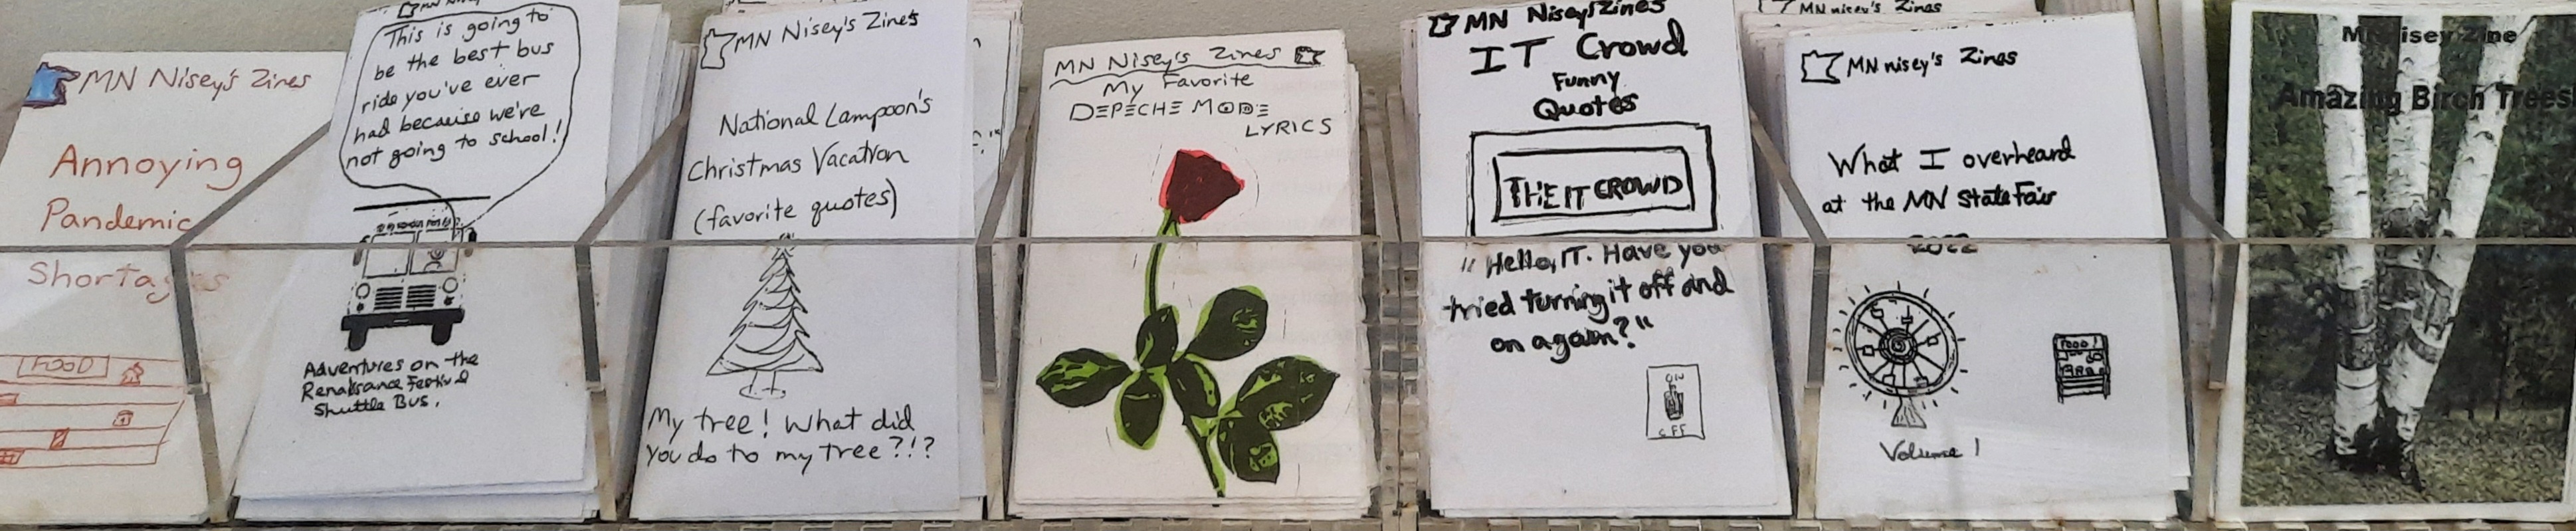 MN Nisey's Zines
Annoying
Pandemic
Shortages
FOOD
This is going to
be the best bus
ride you've ever
had because we're
not going to school!
Adventures on the
Renaissance Festival
Shuttle Bus.
MN Nisey's Zines
National Lampoon's
Christmas Vacation
(favorite quotes)
My tree! What did
you do to my tree?!?
MN Nisey's Zines
My Favorite
DEPECHE MODE
LYRICS
MN Nisey's Zines
IT Crowd
Funny
Quotes
THE IT CROWD
"Hello, IT. Have you
tried turning it off and
on again?"
ON
OFF
MN nisey's Zines
MN nisey's Zines
What I overheard
at the MN State Fair
2022
FOOD!
Volume 1
MN Nisey Zine
Amazing Birch Trees